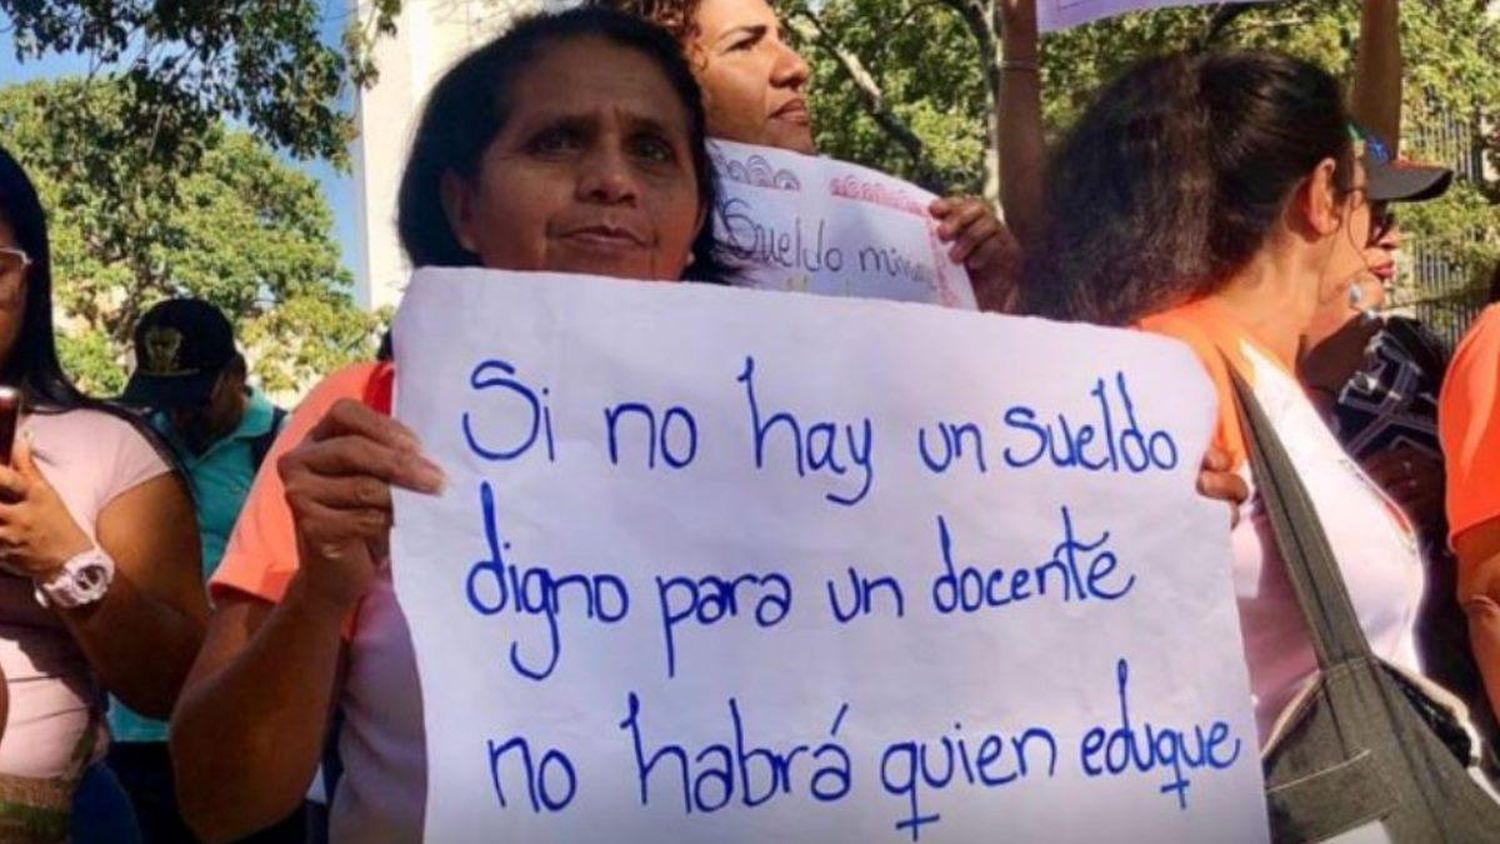 Sueldo
Si no hay un sueldo
digno para un docente
no habrá quien eduque